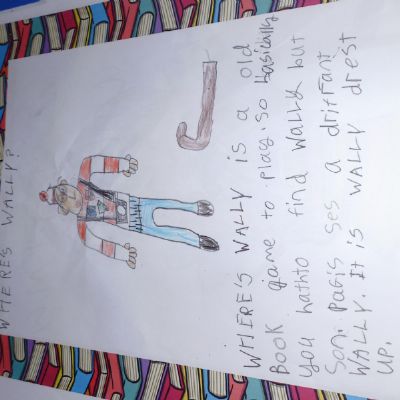 WHERE'S WALLY?
WHERE'S WALLY IS A old
BOOK game to play. so basically
you hathto find Wally but
Som pagis ses a drifrant
WALLY. It is WALLY drest
UP.